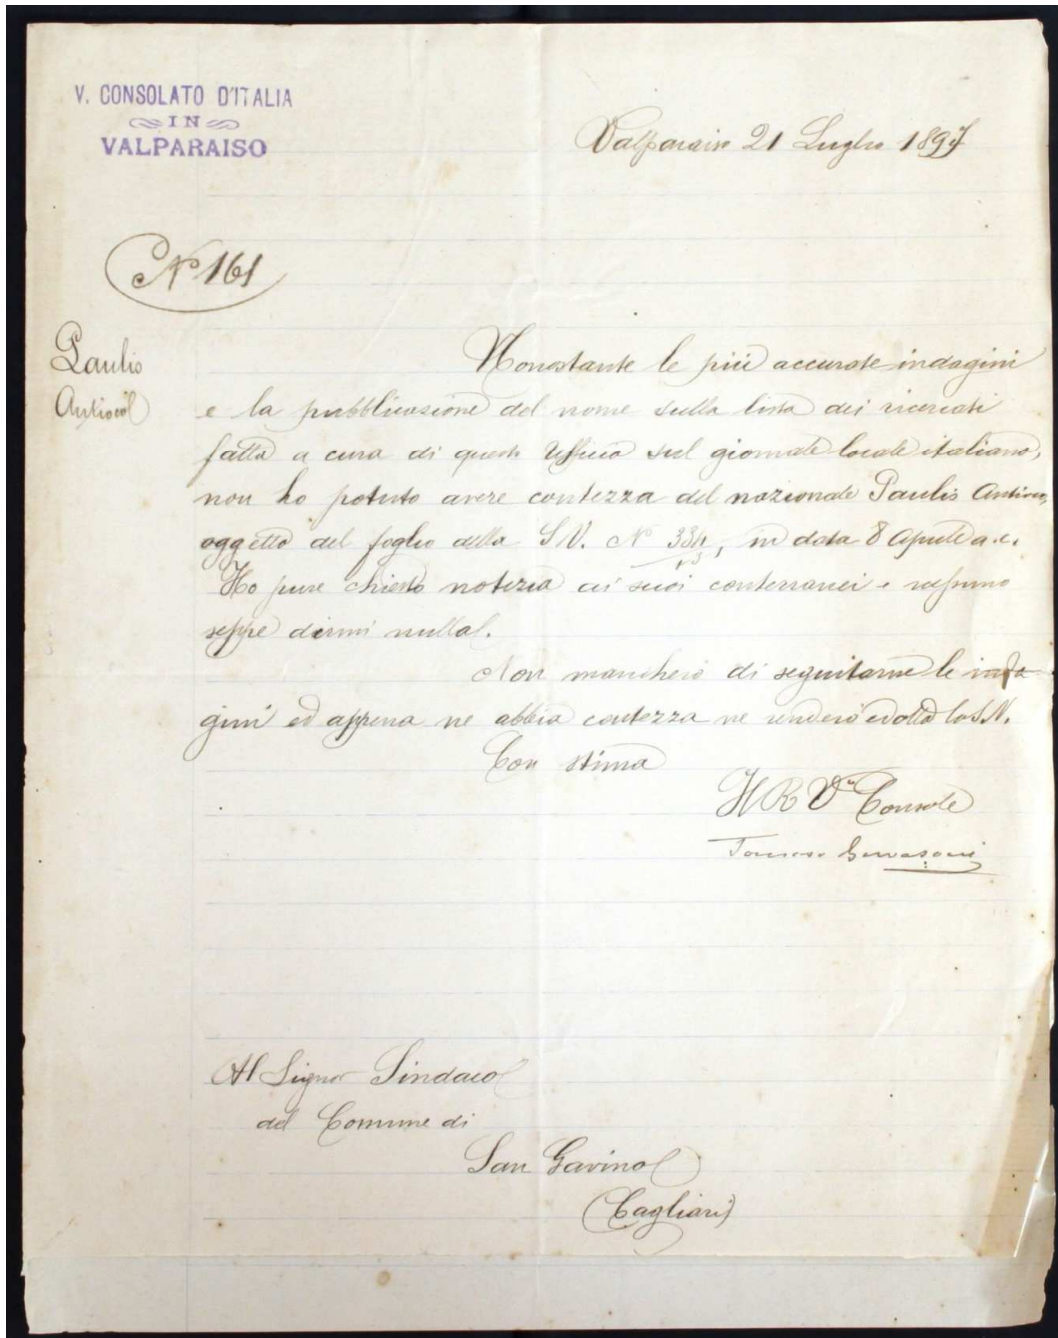 V. CONSOLATO D'ITALIA
IN
VALPARAISO
Valparaiso 21 Luglio 1897
N° 161
Paulis
Antioco
Nonostante le più accurate indagini
e la pubblicazione del nome sulla lista dei ricercati
fatta a cura di questo Ufficio sul giornale locale italiano,
non ho potuto avere contezza del nazionale Paulis Antioco,
oggetto del foglio della S.V. N° 334, in data 8 Aprile a.c.
Ho pure chiesto notizia ai suoi conterranei e nessuno
seppe dirmi nulla.
Non mancherò di seguitarne le inda
gini ed appena ne abbia contezza ne renderò edotta la S.V.
Con stima
Il R V. Console
Tommaso
Al Signor Sindaco
del Comune di
San Gavino
(Cagliari)